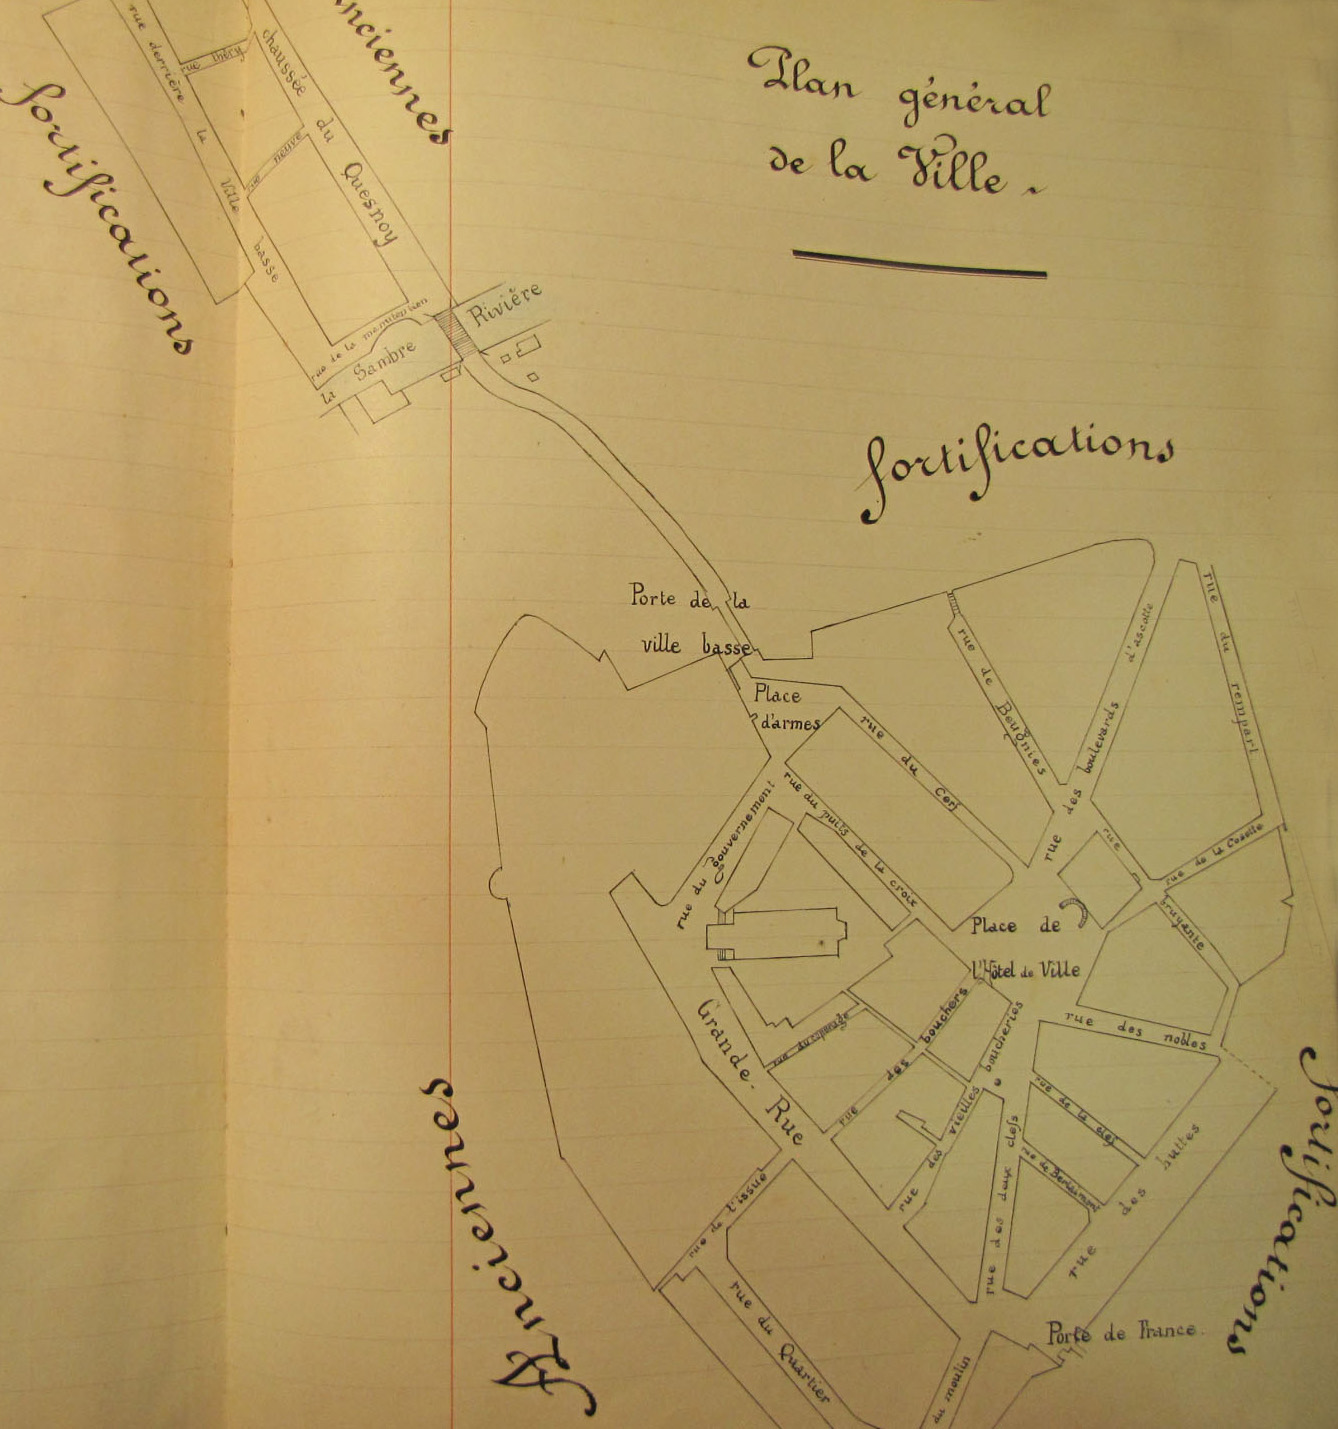 Plan général
de la Ville.
Anciennes
fortifications
rue derrière la Ville basse
rue Théry
chaussée du Quesnoy
rue neuve
rue de la manutention
La Sambre
Rivière
fortifications
Porte de la
ville basse
Place
d'armes
rue du Cerf
rue de Beugnies
rue des boulevards d'ascotte
rue du rempart
rue de la Coselle
rue bruyante
rue du gouvernement
rue du puits de la croix
Place de
l'Hôtel de Ville
rue des nobles
Grande Rue
rue des bouchers
rue des vieilles boucheries
rue de la clef
rue de Berlaimont
rue des deux clefs
rue des huttes
rue de l'issue
rue du Quartier
du moulin
Porte de France.
Anciennes
fortifications